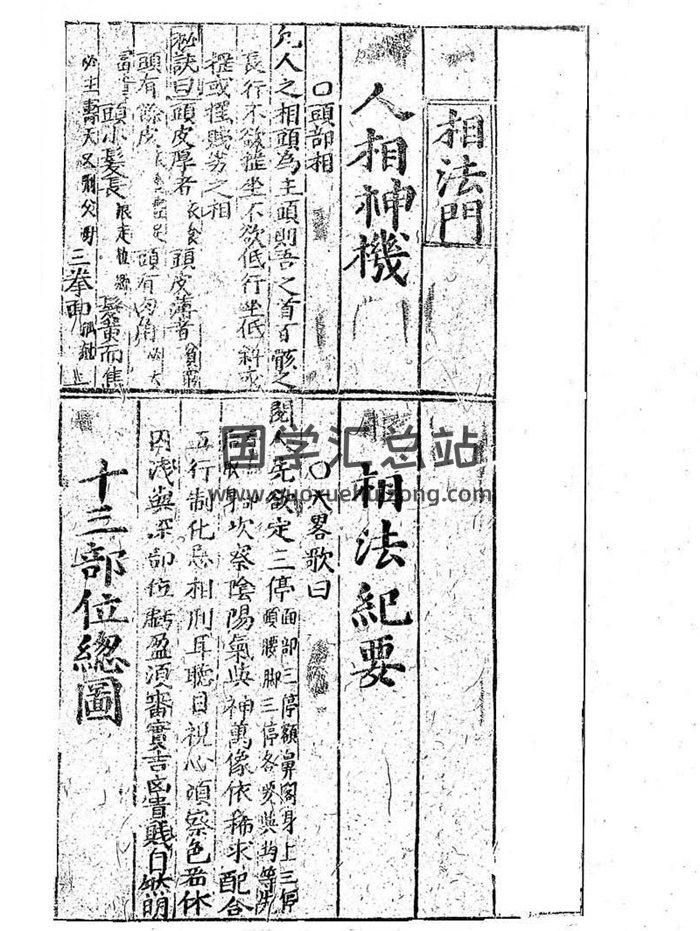 相法門
人相神機門
○頭部相
凡人之相頭為主頭則吾之首百骸之
長行不欲搖坐不欲低行坐低斜或
搖或擺賤劣之相
秘訣曰頭皮厚者衣食頭皮薄者貧賤
頭有餘皮 頭有肉角必大
富貴頭小髮長 髮黃而焦
必主壽夭又刑父母三拳面
相法紀要
○大畧歌曰
閱人先欲定三停面部三停額鼻閣身上三停
頭腰脚三停各要與均等
次察陰陽氣與神萬像依稀求配合
五行制化忌相刑耳聽目視心須察色若休
囚淺與深部位虧盈須審實吉凶貴賤自然明
十三部位緫圖
国学汇总站
www.guoxuehuizong.com